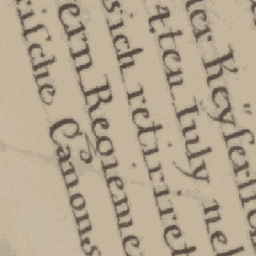 er Keÿſerlich
4.ten Iuly
sich retiriret
ern Regieme
riſche Canons